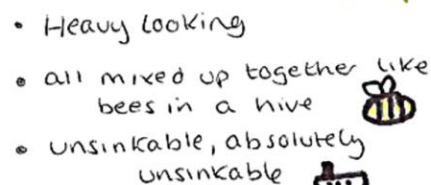 • Heavy looking
• all mixed up together like
bees in a hive
• unsinkable, absolutely
unsinkable